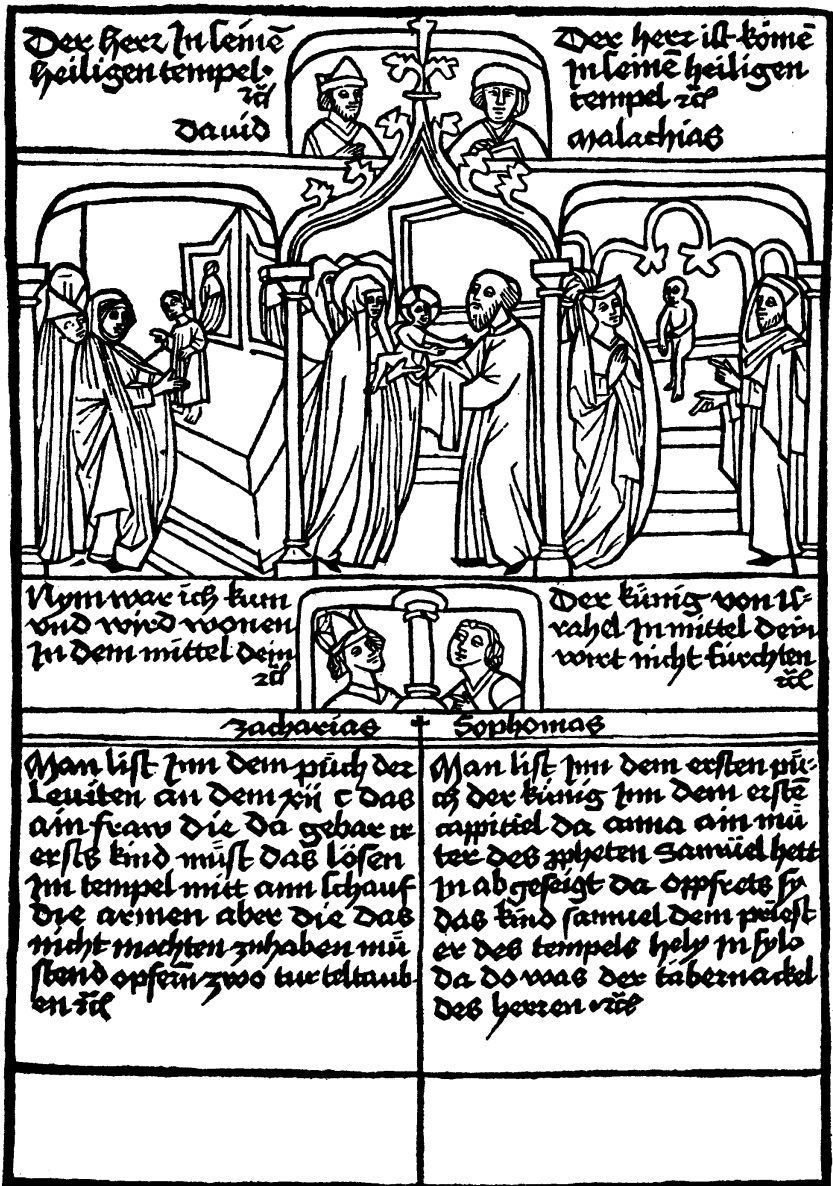 Der herr Jn seinē
heiligen tempel·
ꝛc̄
david
Der herr ist kömē
Jn seinē heiligen
tempel ꝛc̄
Malachias
Nym war ich kum
vnd wird wonen
Jn dem mittel dein
ꝛc̄
Der künig von Js-
rahel Jn mittel dein
wirt nicht fürchten
ꝛc̄
Zacharias + Sophonias
Man list Jnn dem püch der
Leuiten an dem xii c das
ain fraw die da gebar ir
ersts kind müst das lösen
Jm tempel mitt ann schauf
Die armen aber die das
nicht mochten zuhaben mü
stend opfern̄ zwo turteltaub
en ꝛc̄
Man list Jnn dem ersten pü-
ch der künig Jnn dem erstē
cappittel da anna ain mü
ter des ꝓpheten Samüel hett
Jn abgeseigt da oppfrets sy
das kind samuel dem priest
er des tempels hely Jn sylo
da do was der tabernackel
des herren ·ꝛc̄